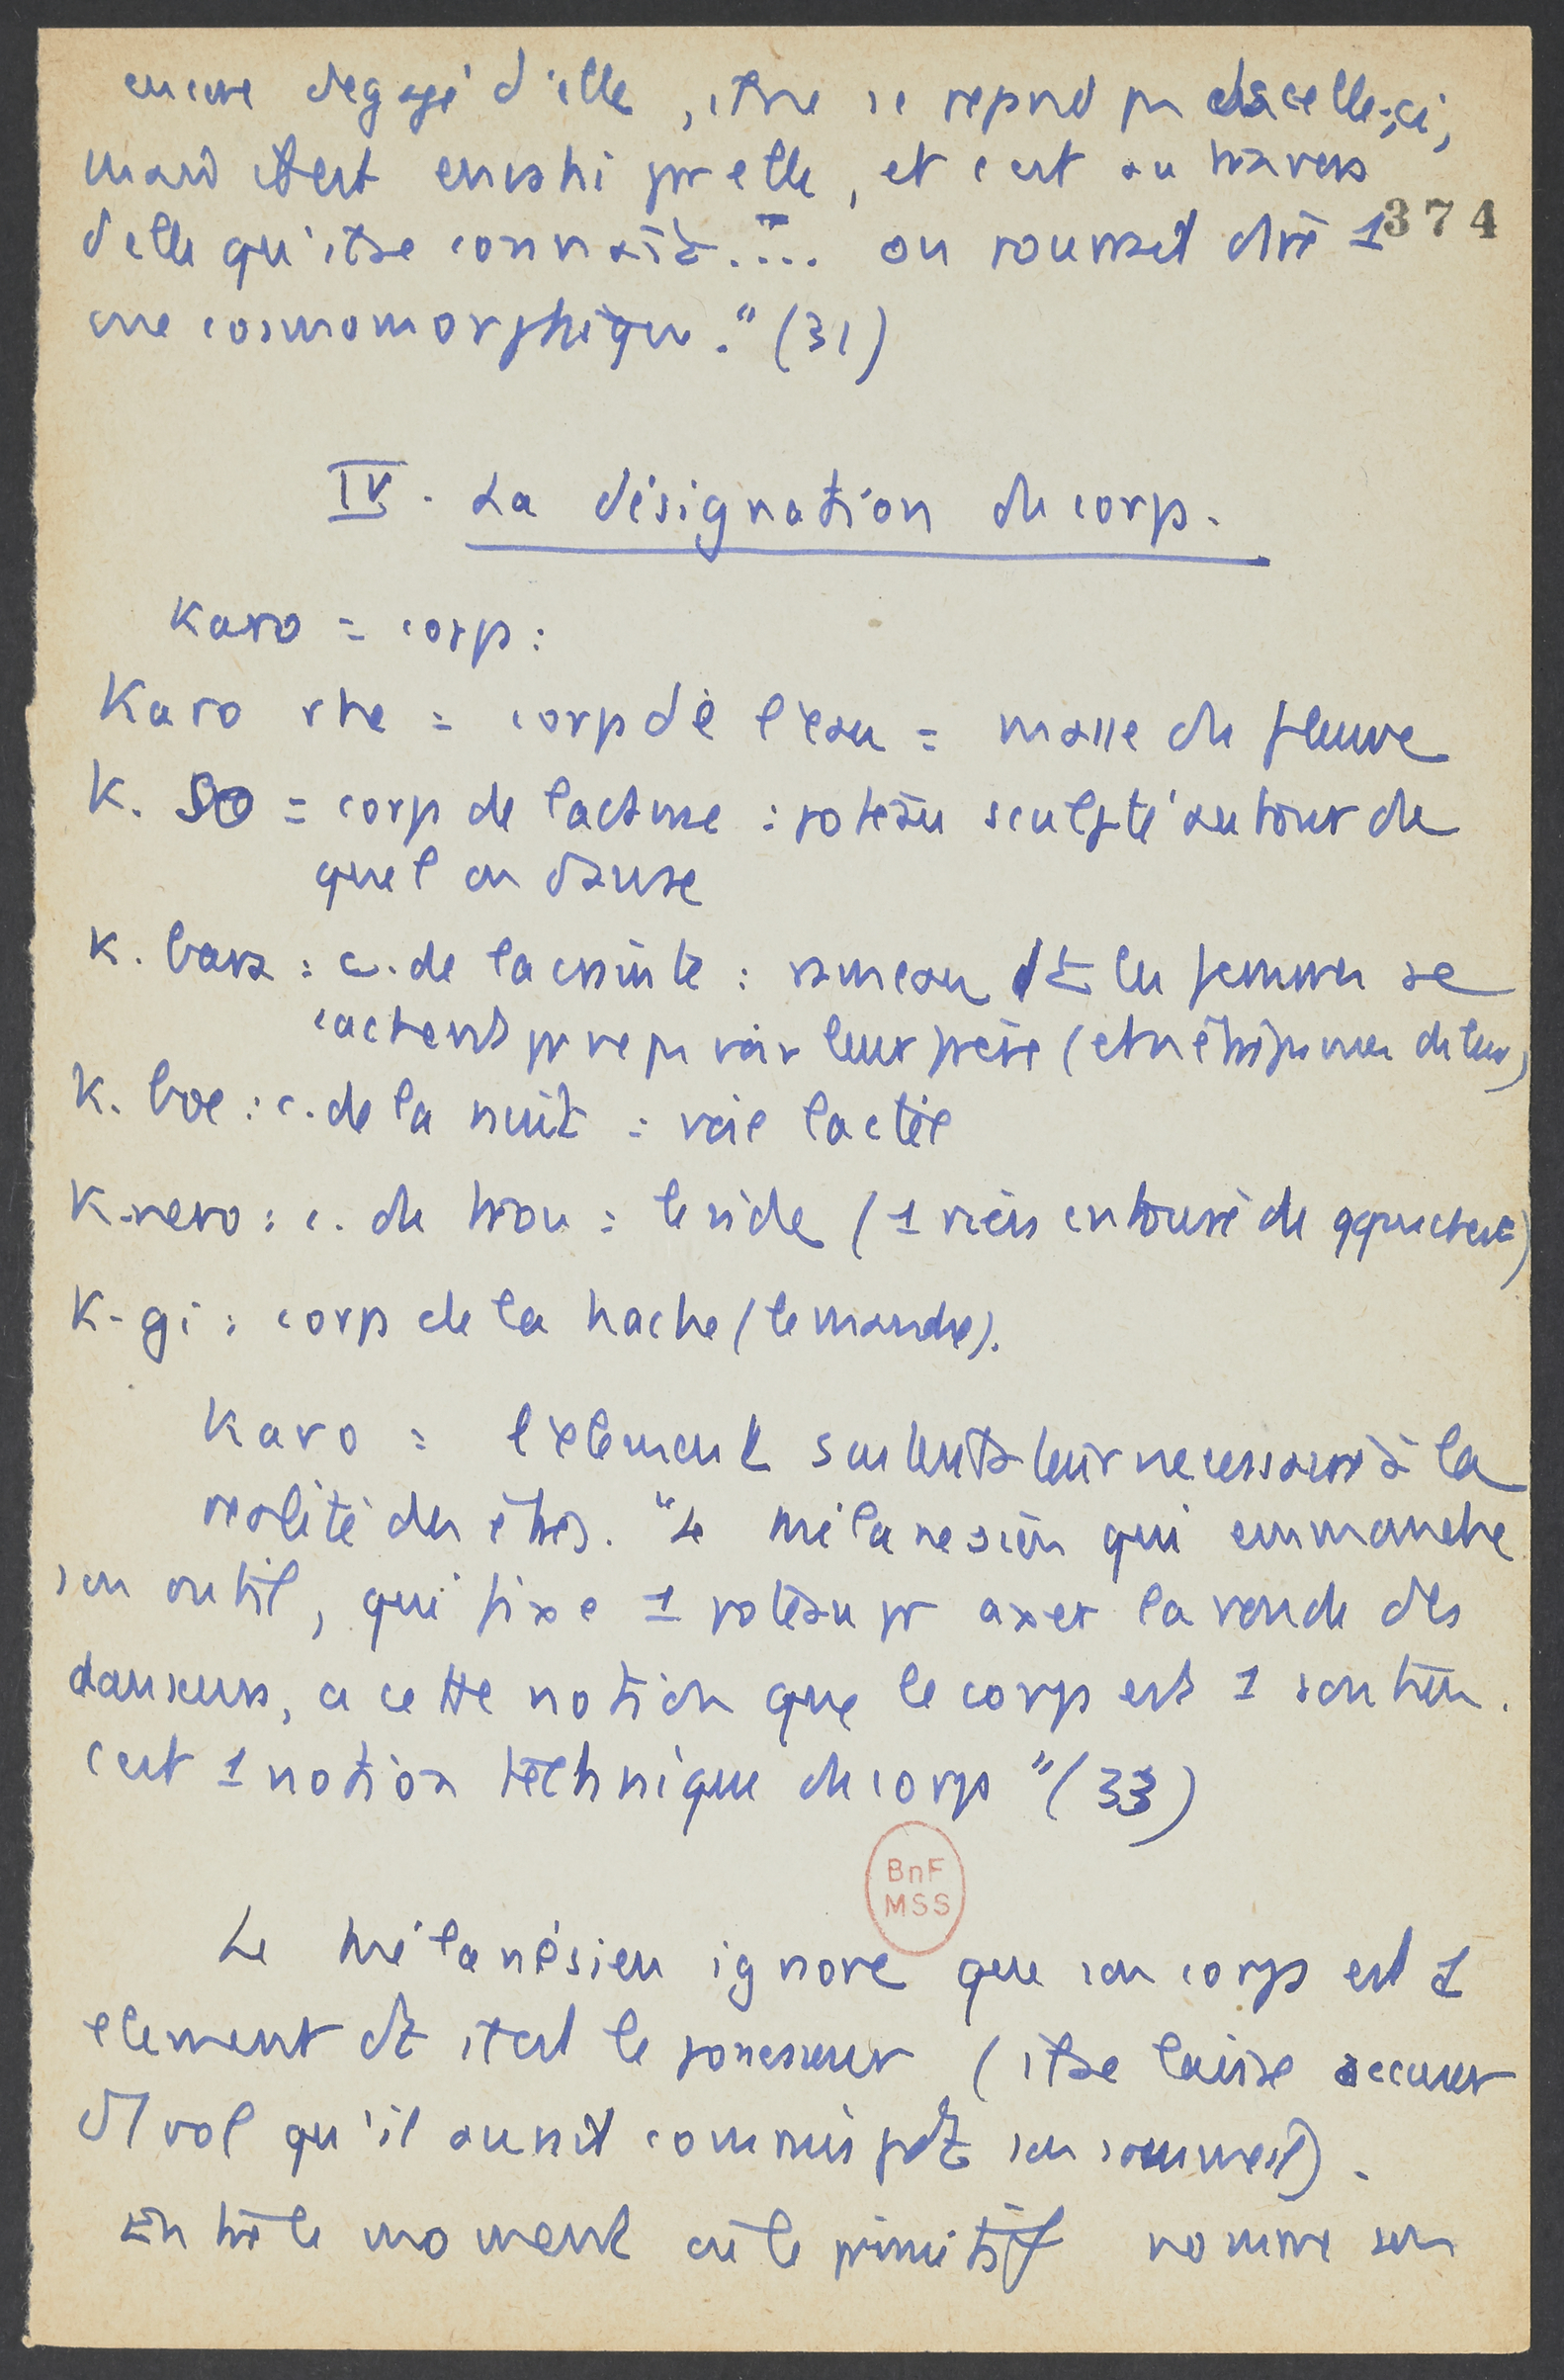 encore dégagé d'elle, il ne se repend pas ds celle-ci,
mais il est envahi par elle, et c'est au travers
374
d'elle qu'il se connaît.... on pourrait dire 1
vue cosmomorphique." (31)
IV. La désignation du corps.
Karo = corps:
Karo rhe = corps de l'eau = masse du fleuve
K. so = corps de la danse : poteau sculpté autour du
quel on danse
K. bara : c. de la crainte : rameau dt les femmes se
cachent pr ne pas voir leur frère (et n'être pas vues de lui)
K. boe : c. de la nuit : voie lactée
K. nevo : c. du trou : le vide (1 rien entouré de qque chose)
K. gi : corps de la hache (le manche).
Karo = l'élément sustentateur nécessaire à la
réalité des êtres. "Le mélanésien qui emmanche
son outil, qui fixe 1 poteau pr axer la ronde des
danseurs, a cette notion que le corps est 1 soutien.
C'est 1 notion technique du corps" (33)
BnF
MSS
Le mélanésien ignore que son corps est 1
element dt il est le possesseur (il se laisse accuser
d'1 vol qu'il aurait commis pdt son sommeil).
Entre le moment où le primitif nomme son